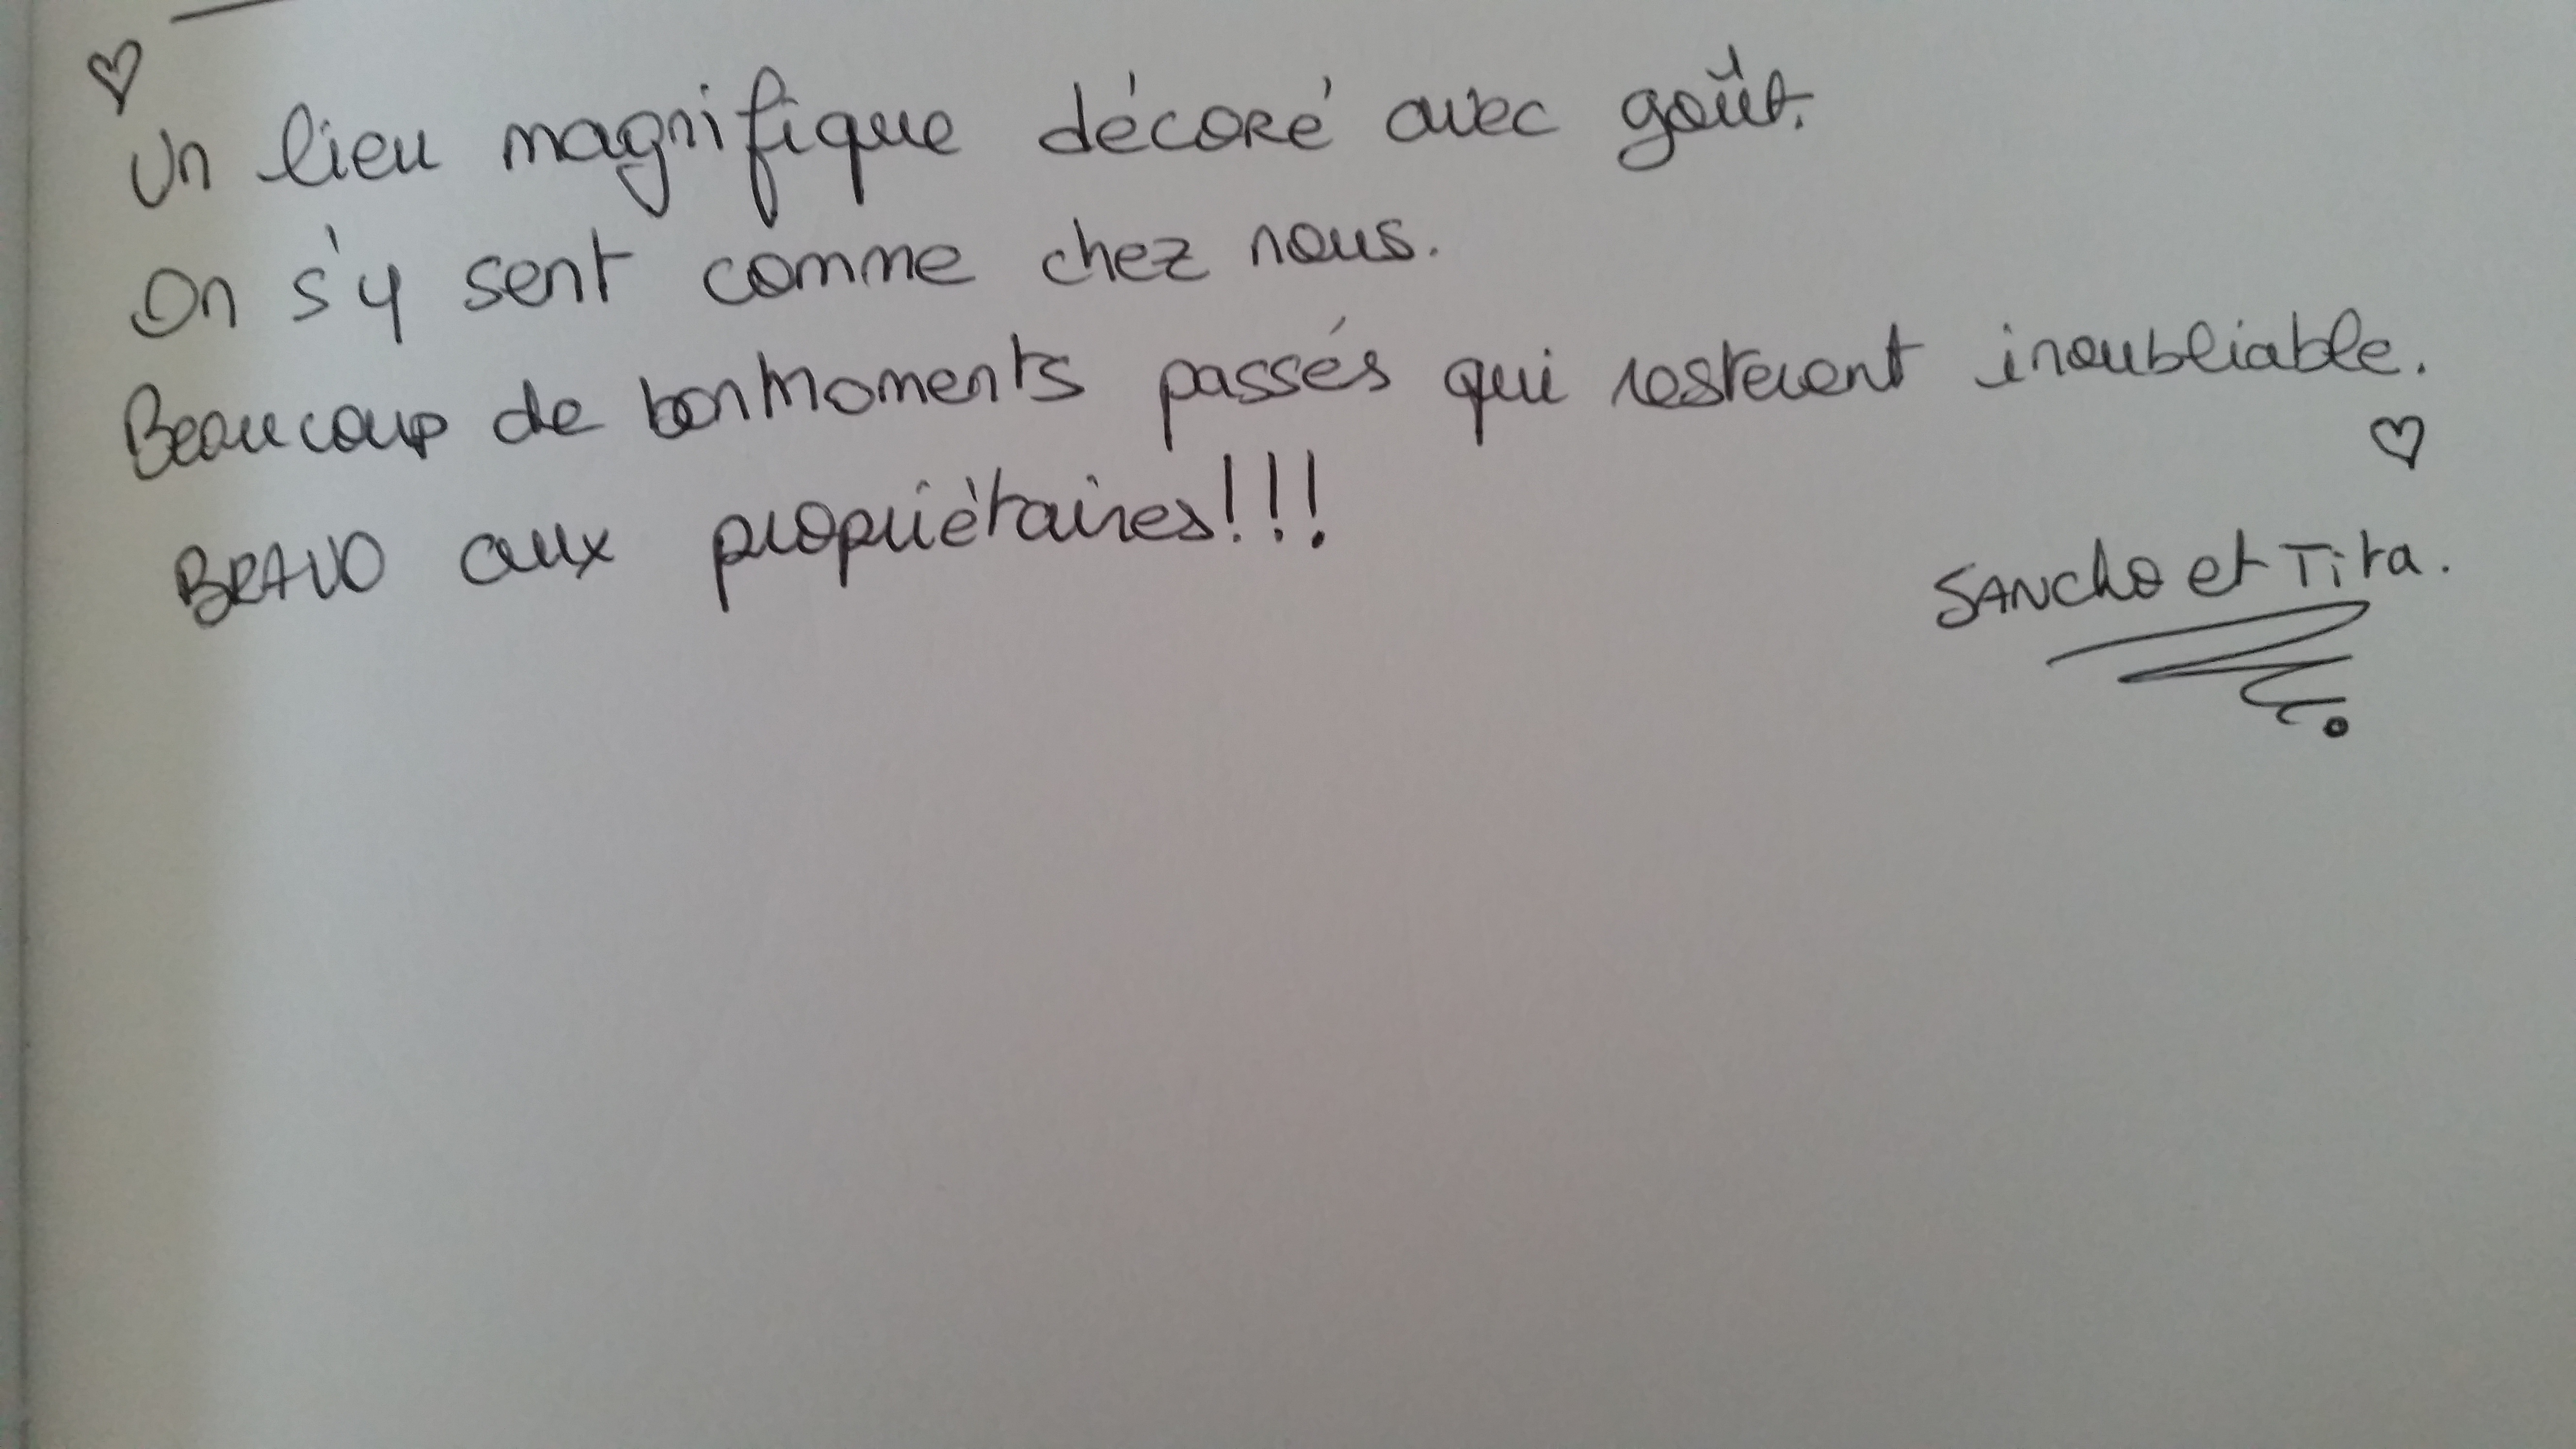 Un lieu magnifique décoré avec goût.
On s'y sent comme chez nous.
Beaucoup de bon moments passés qui resteront inoubliable.
BRAVO aux propriétaires!!!
SANCHO et Tita.